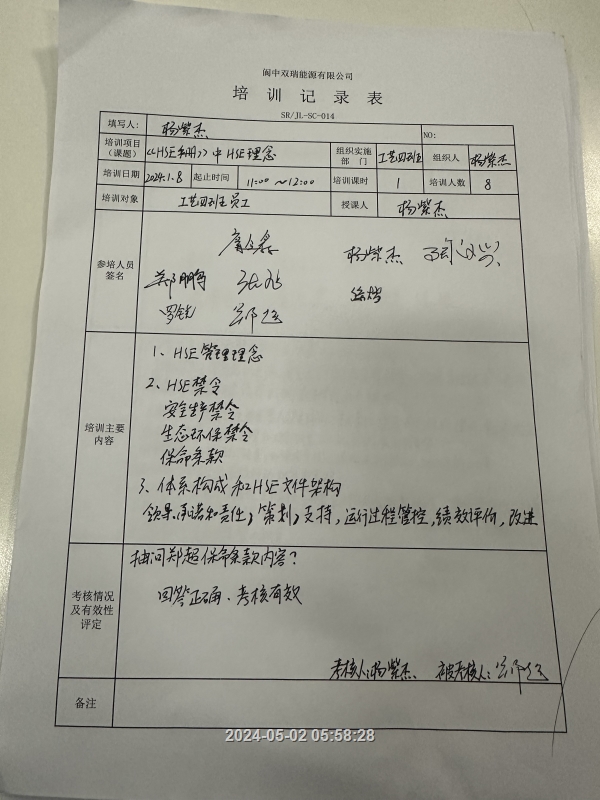 阆中双瑞能源有限公司
培训记录表
SR/JL-SC-014
填写人: 杨紫杰 NO:
培训项目(课题) 《HSE手册》中HSE理念 组织实施部门 工艺四班 组织人 杨紫杰
培训日期 2024.1.8 起止时间 11:00 ~12:00 培训课时 1 培训人数 8
培训对象 工艺四班员工 授课人 杨紫杰
参培人员签名
杨紫杰
郑鹏
培训主要内容
1、HSE管理理念
2、HSE禁令
安全生产禁令
生态环保禁令
保命条款
3、体系构成和HSE文件架构
领导承诺和责任,策划,支持,运行过程管控,绩效评价,改进
考核情况及有效性评定
抽问郑超保命条款内容?
回答正确、考核有效
考核人:杨紫杰、被考核人:
备注
2024-05-02 05:58:28